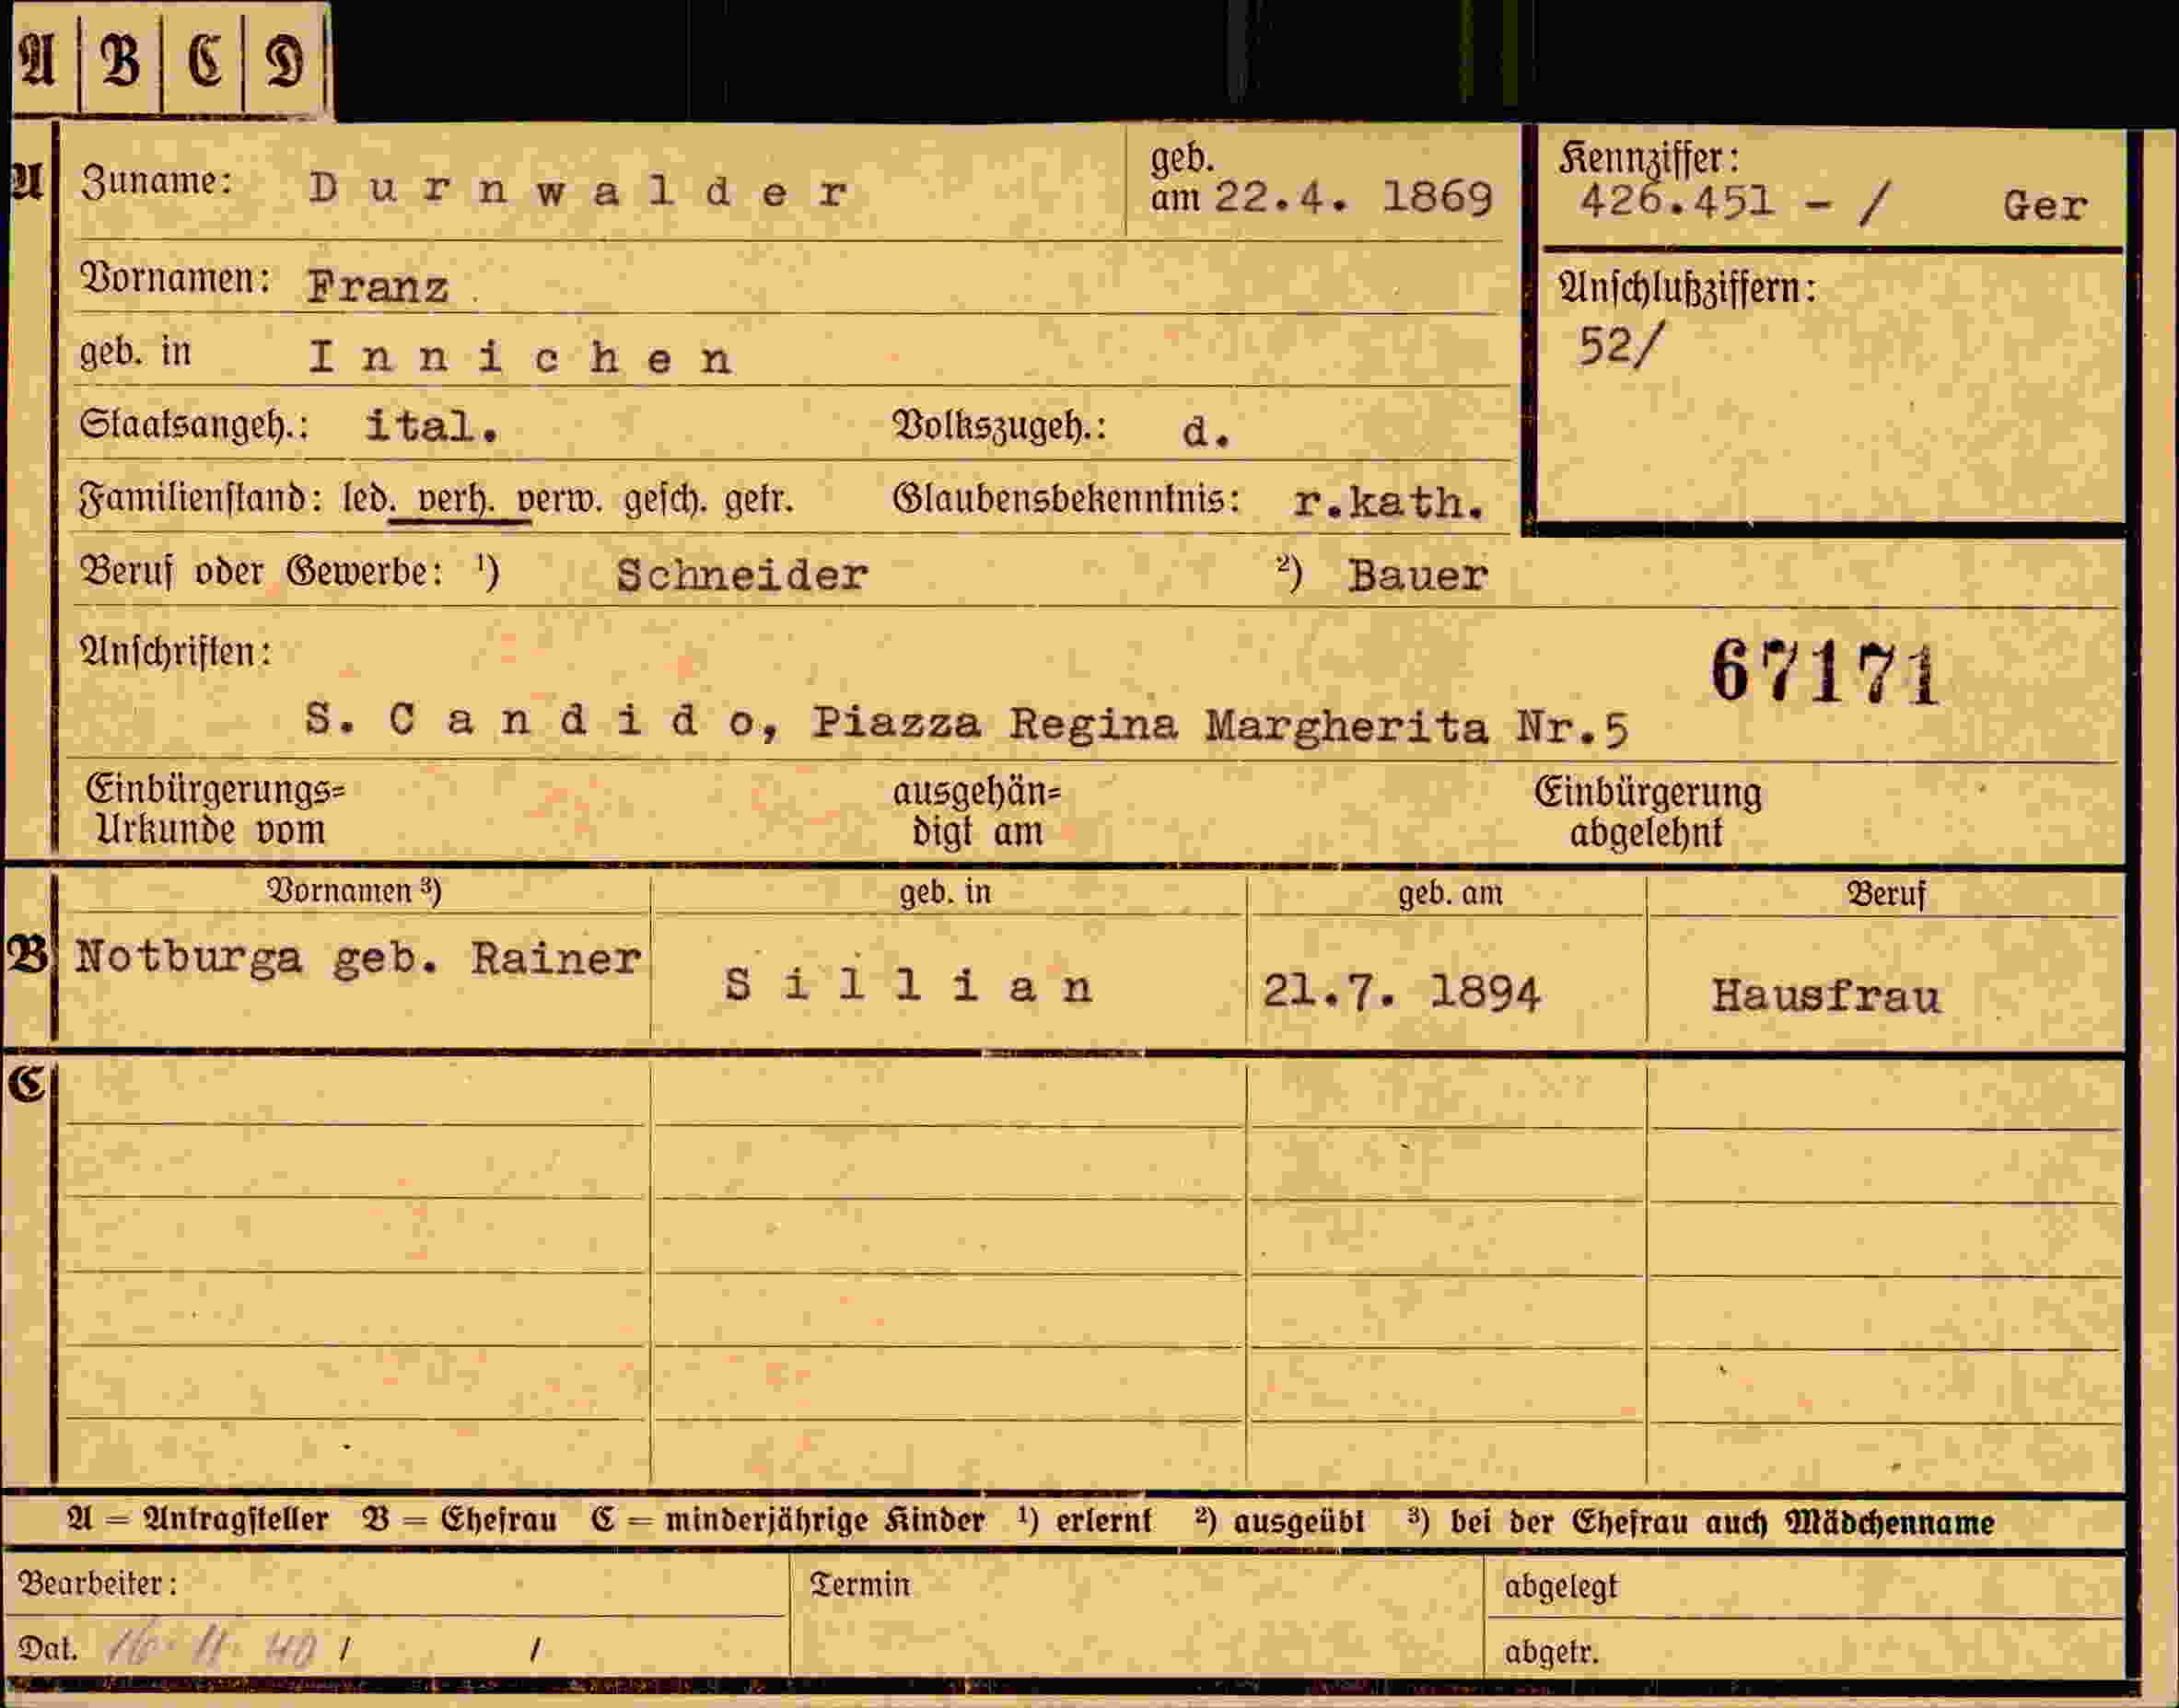 A B C D
A Zuname: Durnwalder geb. am 22.4. 1869
Kennziffer: 426.451 - / Ger
Vornamen: Franz
Anschlußziffern: 52/
geb. in Innichen
Staatsangeh.: ital. Volkszugeh.: d.
Familienstand: led. verh. verw. gesch. getr. Glaubensbekenntnis: r.kath.
Beruf oder Gewerbe: ¹) Schneider ²) Bauer
Anschriften: 67171
S. Candido, Piazza Regina Margherita Nr.5
Einbürgerungs= ausgehän= Einbürgerung
Urkunde vom digt am abgelehnt
Vornamen ³) geb. in geb. am Beruf
B Notburga geb. Rainer Sillian 21.7. 1894 Hausfrau
C
A = Antragsteller B = Ehefrau C = minderjährige Kinder ¹) erlernt ²) ausgeübt ³) bei der Ehefrau auch Mädchenname
Bearbeiter: Termin abgelegt
Dat. 16. 11. 40 / / abgetr.